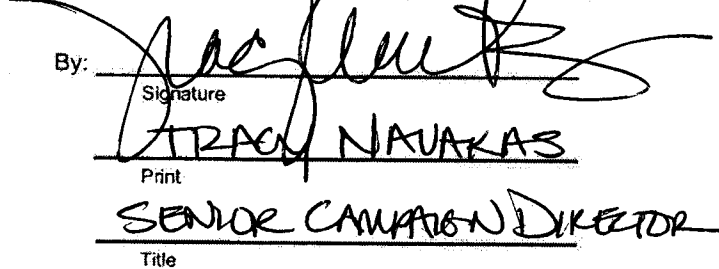 By:
Signature
TRACY NAVAKAS
Print
SENIOR CAMPAIGN DIRECTOR
Title